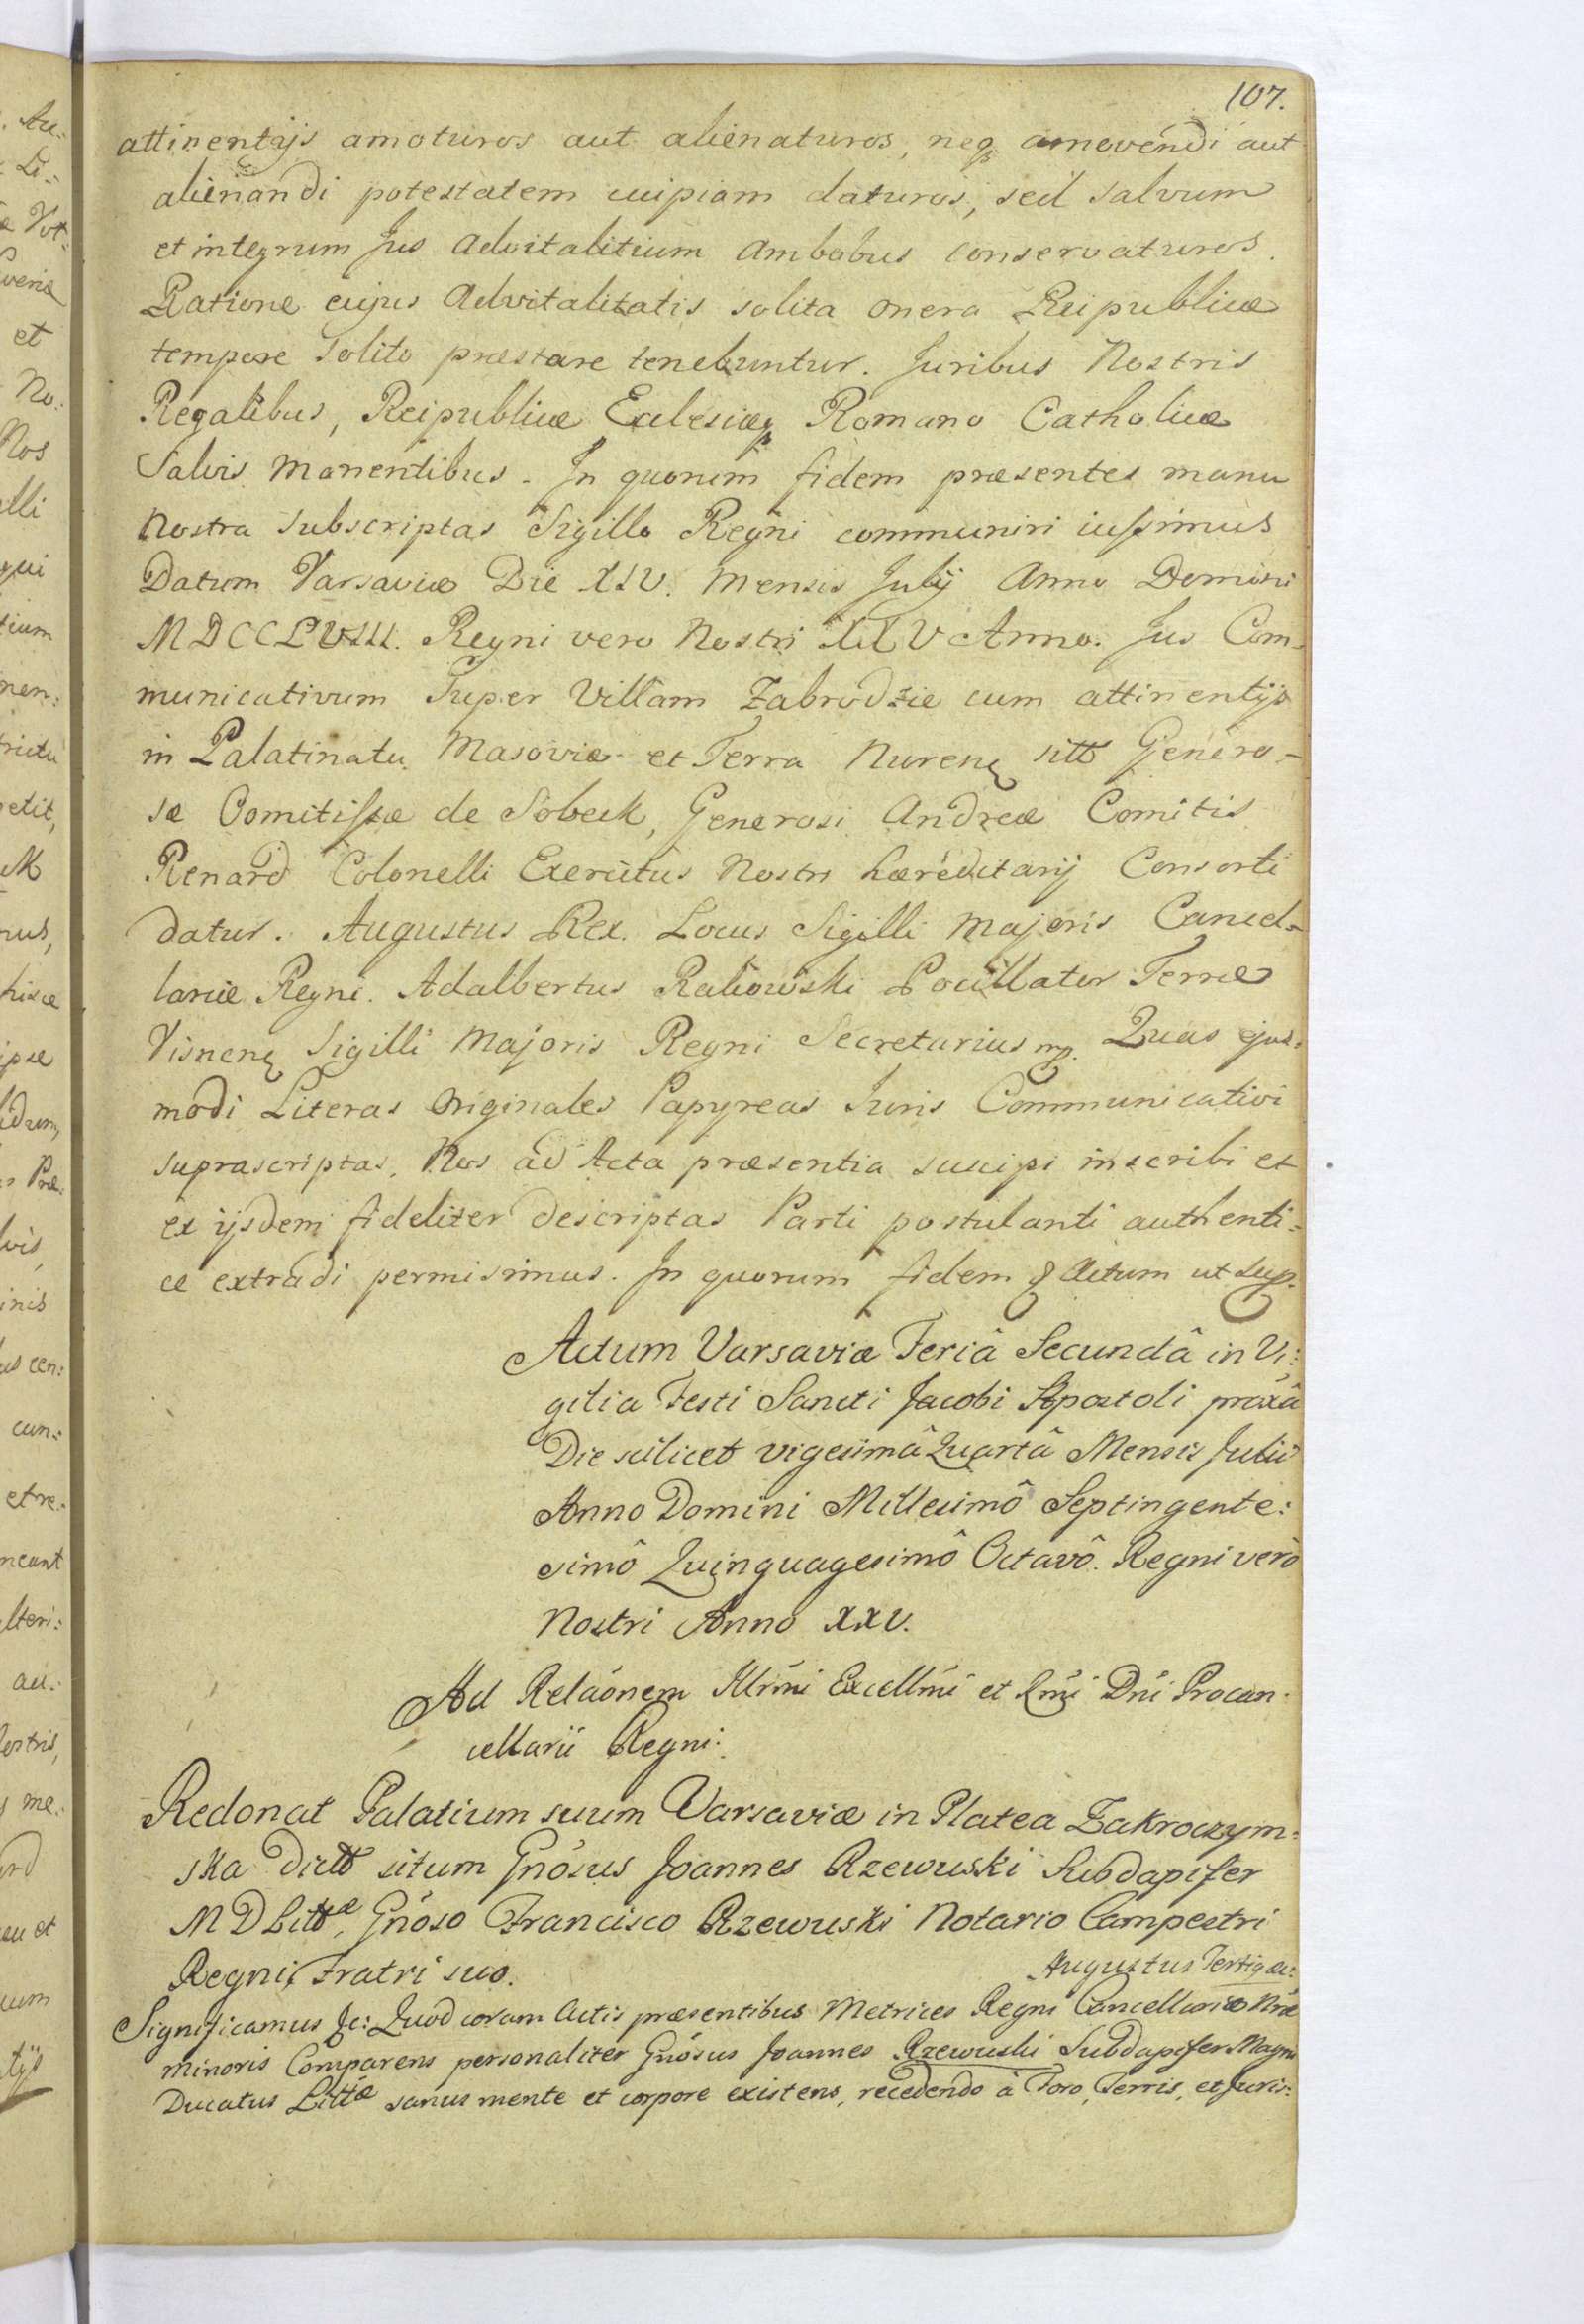 107.
attinentijs amoturos aut alienaturos, neq amovendi aut
alienandi potestatem cuipiam daturos, sed salvum
et integrum Jus Advitalitium Ambobus conservaturos.
Ratione cujus Advitalitatis solita onera Reipublicæ
tempore solito præstare tenebuntur. Juribus Nostris
Regalibus, Reipublicæ Ecclesiæq Romano Catholicæ
Salvis manentibus. In quorum fidem præsentes manu
Nostra subscriptas Sigillo Regni communiri iussimus
Datum Varsaviæ Die XIV. Mensis Julij Anno Domini
MDCCLVIII. Regni vero Nostri XXV Anno. Jus Com-
municativum Super Villam Zabrodzie cum attinentijs
in Palatinatu Masoviæ et Terra Nuren sitt Genero-
sæ Comitissæ de Sobeck, Generosi Andreæ Comitis
Renard Colonelli Exercitus Nostri hæreditarij Consorti
datur. Augustus Rex. Locus Sigilli Majoris Cancel-
lariæ Regni. Adalbertus Rakowski Pocillator Terræ
Visnen Sigilli Majoris Regni Secretarius mp. Quas ejus-
modi Literas Originales Papyreas Juris Communicativi
suprascriptas, Nos ad Acta præsentia suscipi inscribi et
ex ijsdem fideliter descriptas Parti postulanti authenti=
ce extradi permisimus. In quorum fidem & Actum ut sup.
Actum Varsaviæ Feriâ Secundâ in Vi:
gilia Festi Sancti Jacobi Apostoli proxâ
Die scilicet vigesimâ Quartâ Mensis Julii
Anno Domini Millesimô Septingente:
simô Quinquagesimô Octavô. Regni verò
Nostri Anno XXV.
Ad Relaonem Illrmi Excellmi et Rmi Dni Procan-
cellarii Regni:
Redonat Palatium suum Varsaviæ in Platea Zakroczym=
ska dictt situm Gnosus Joannes Rzewuski Subdapifer
M D Littæ, Gnoso Francisco Rzewuski Notario Campestri
Regni, Fratri suo.
Augustus Tertig &:
Significamus &c: Quod coram Actis præsentibus Metrices Regni Cancellariæ Nræ
minoris Comparens personaliter Gnosus Joannes Rzewuski Subdapifer Magni
Ducatus Littæ sanus mente et corpore existens, recedendo à Foro, Terris, et Juris: